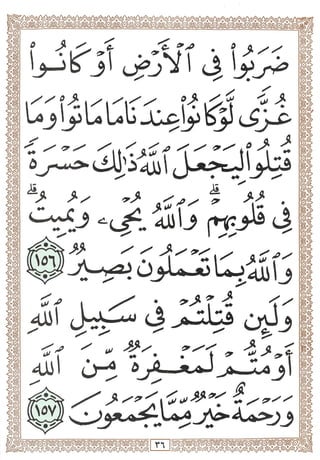 ضَرَبُوا۟ فِى ٱلْأَرْضِ أَوْ كَانُوا۟
غُزًّى لَّوْ كَانُوا۟ عِندَنَا مَا مَاتُوا۟ وَمَا
قُتِلُوا۟ لِيَجْعَلَ ٱللَّهُ ذَٰلِكَ حَسْرَةً
فِى قُلُوبِهِمْ ۗ وَٱللَّهُ يُحْىِۦ وَيُمِيتُ ۗ
وَٱللَّهُ بِمَا تَعْمَلُونَ بَصِيرٌ ١٥٦
وَلَئِن قُتِلْتُمْ فِى سَبِيلِ ٱللَّهِ
أَوْ مُتُّمْ لَمَغْفِرَةٌ مِّنَ ٱللَّهِ
وَرَحْمَةٌ خَيْرٌ مِّمَّا يَجْمَعُونَ ١٥٧
٣٦